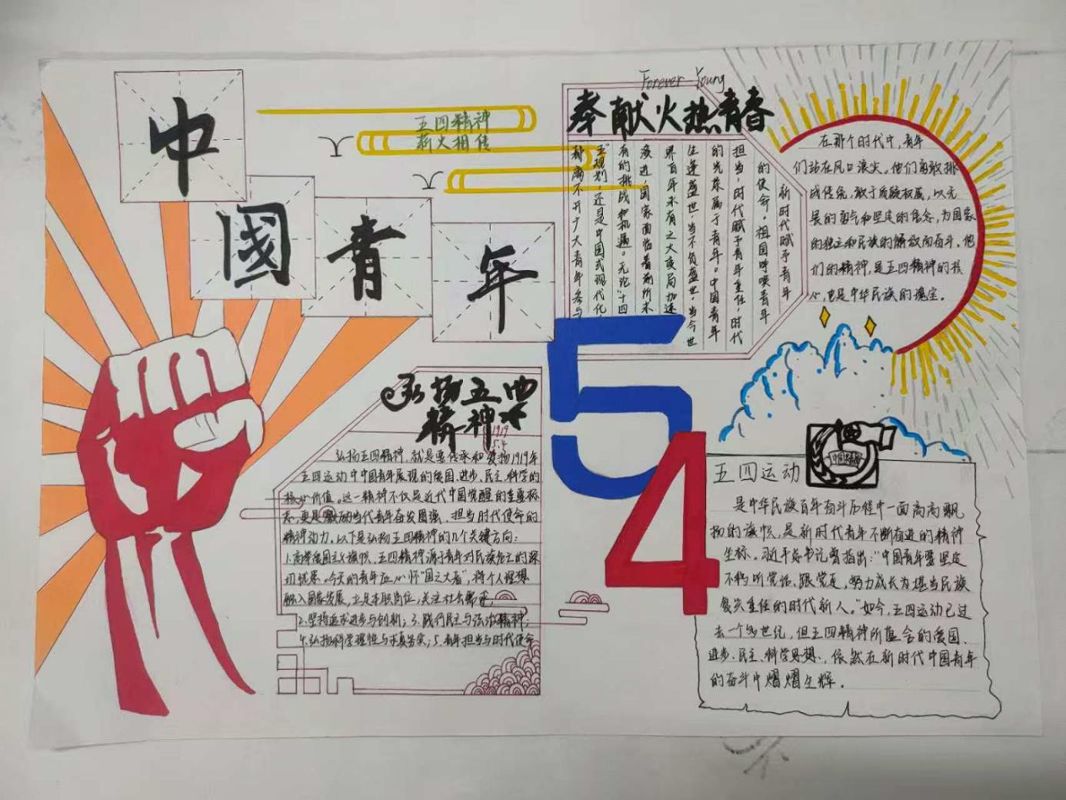 中國青年
五四精神
薪火相传
Forever Young
奉献火热青春
新时代赋予青年
的使命。祖国呼唤青年
担当,时代赋予青年重任,时代
的光荣属于青年。中国青年
生逢盛世,当不负盛世。当今世
界百年未有之大变局加速
演进,国家面临着前所未
有的挑战和机遇。无论"十四
五"规划,还是中国式现代化
都离不开广大青年参与
在那个时代中,青年
们站在风口浪尖,他们勇敢挑
战传统,敢于质疑权威,以无
畏的勇气和坚定的信念,为国家
的独立和民族的解放而奋斗。他
们的精神,是五四精神的核
心,也是中华民族的瑰宝。
弘扬五四
精神
1919
5.4
弘扬五四精神,就是要传承和发扬1919年
五四运动中中国青年展现的爱国、进步、民主、科学的
核心价值。这一精神不仅是近代中国觉醒的重要标
志,更是激励当代青年奋发图强、担当时代使命的
精神动力。以下是弘扬五四精神的几个关键方向:
1.高举爱国主义旗帜,五四精神源于青年对民族危亡的深
切忧患。今天的青年应心怀"国之大者",将个人理想
融入国家发展,立足本职岗位,关注社会需求;
2.坚持追求进步与创新;3.践行民主与法治精神;
4.弘扬科学理性与求真务实;5.青年担当与时代使命
54
五四运动
是中华民族百年奋斗历程中一面高高飘
扬的旗帜,是新时代青年不断奋进的精神
坐标。习近平总书记曾指出:"中国青年要坚定
不移听党话、跟党走,努力成长为堪当民族
复兴重任的时代新人。"如今,五四运动已过
去一个多世纪,但五四精神所蕴含的爱国、
进步、民主、科学思想,依然在新时代中国青年
的奋斗中熠熠生辉。